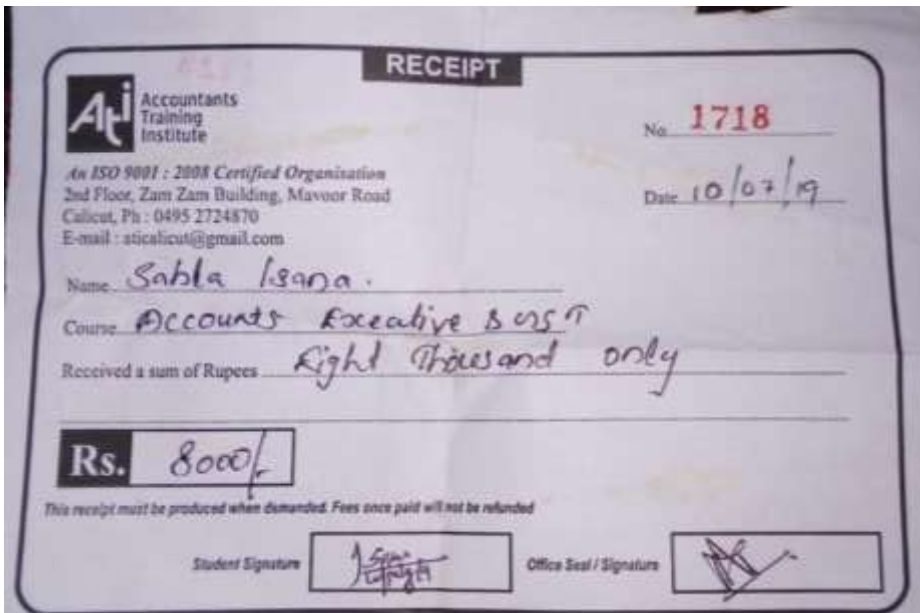 RECEIPT
Ati Accountants
Training
Institute
No 1718
An ISO 9001 : 2008 Certified Organisation
2nd Floor, Zam Zam Building, Mavoor Road
Calicut, Ph : 0495 2724870
E-mail : aticalicut@gmail.com
Date 10/07/19
Name Sabla
Course Accounts Executive & GST
Received a sum of Rupees Eight Thousand only
Rs. 8000/-
This receipt must be produced when demanded. Fees once paid will not be refunded
Student Signature
Office Seal / Signature